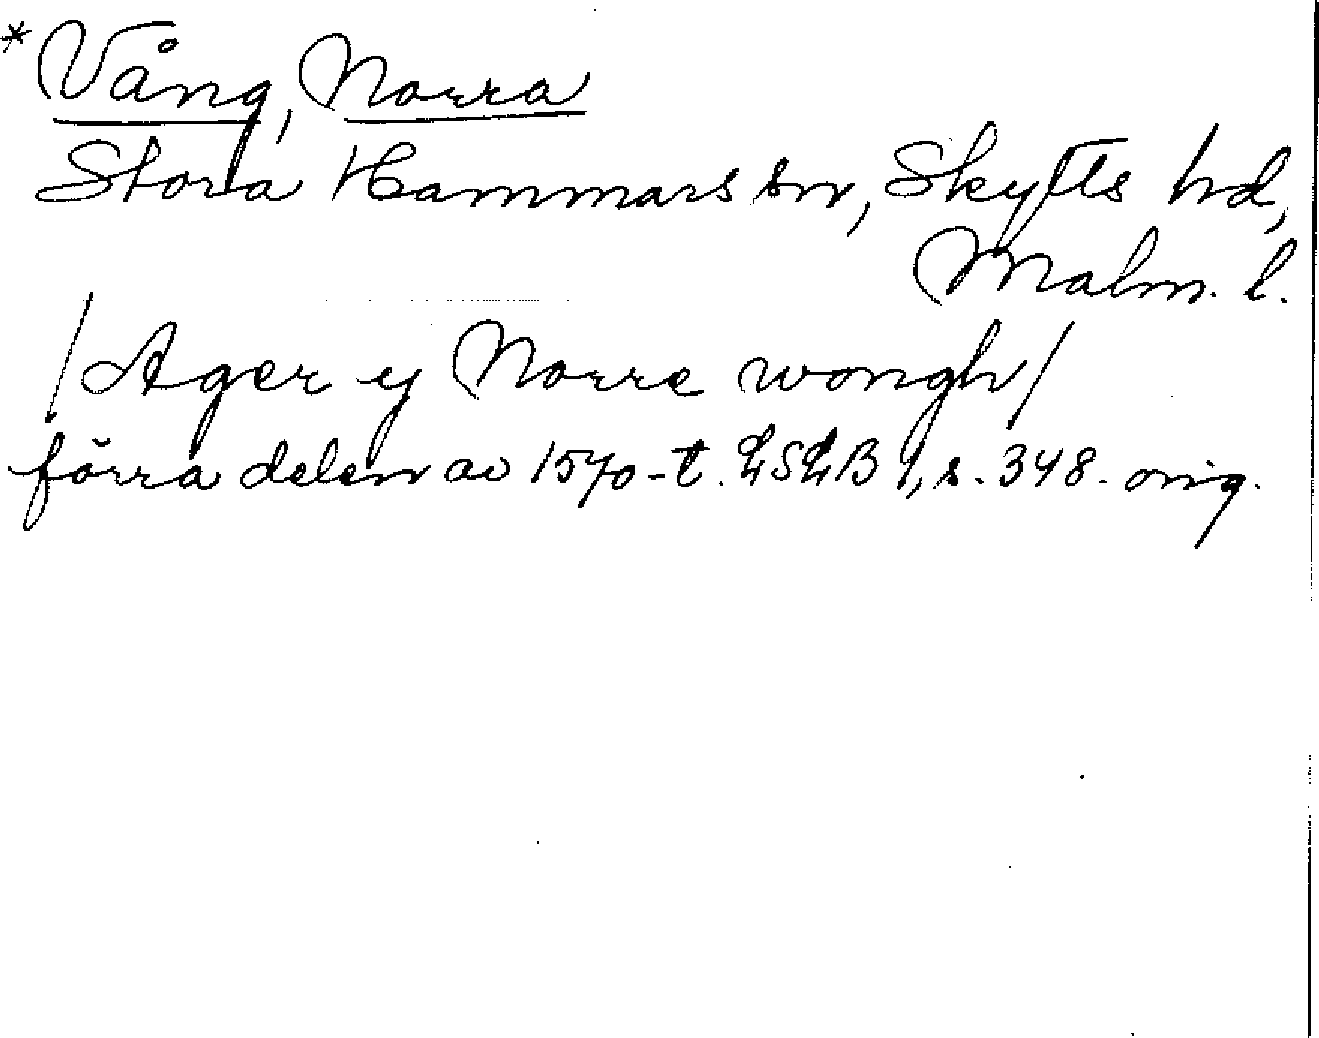 *Vång, Norra
Stora Hammars sn, Skytts hd,
Malm. l.
/Ager y Norre wongh/
förra delen av 1570-t. LSLB I, s. 348. orig.